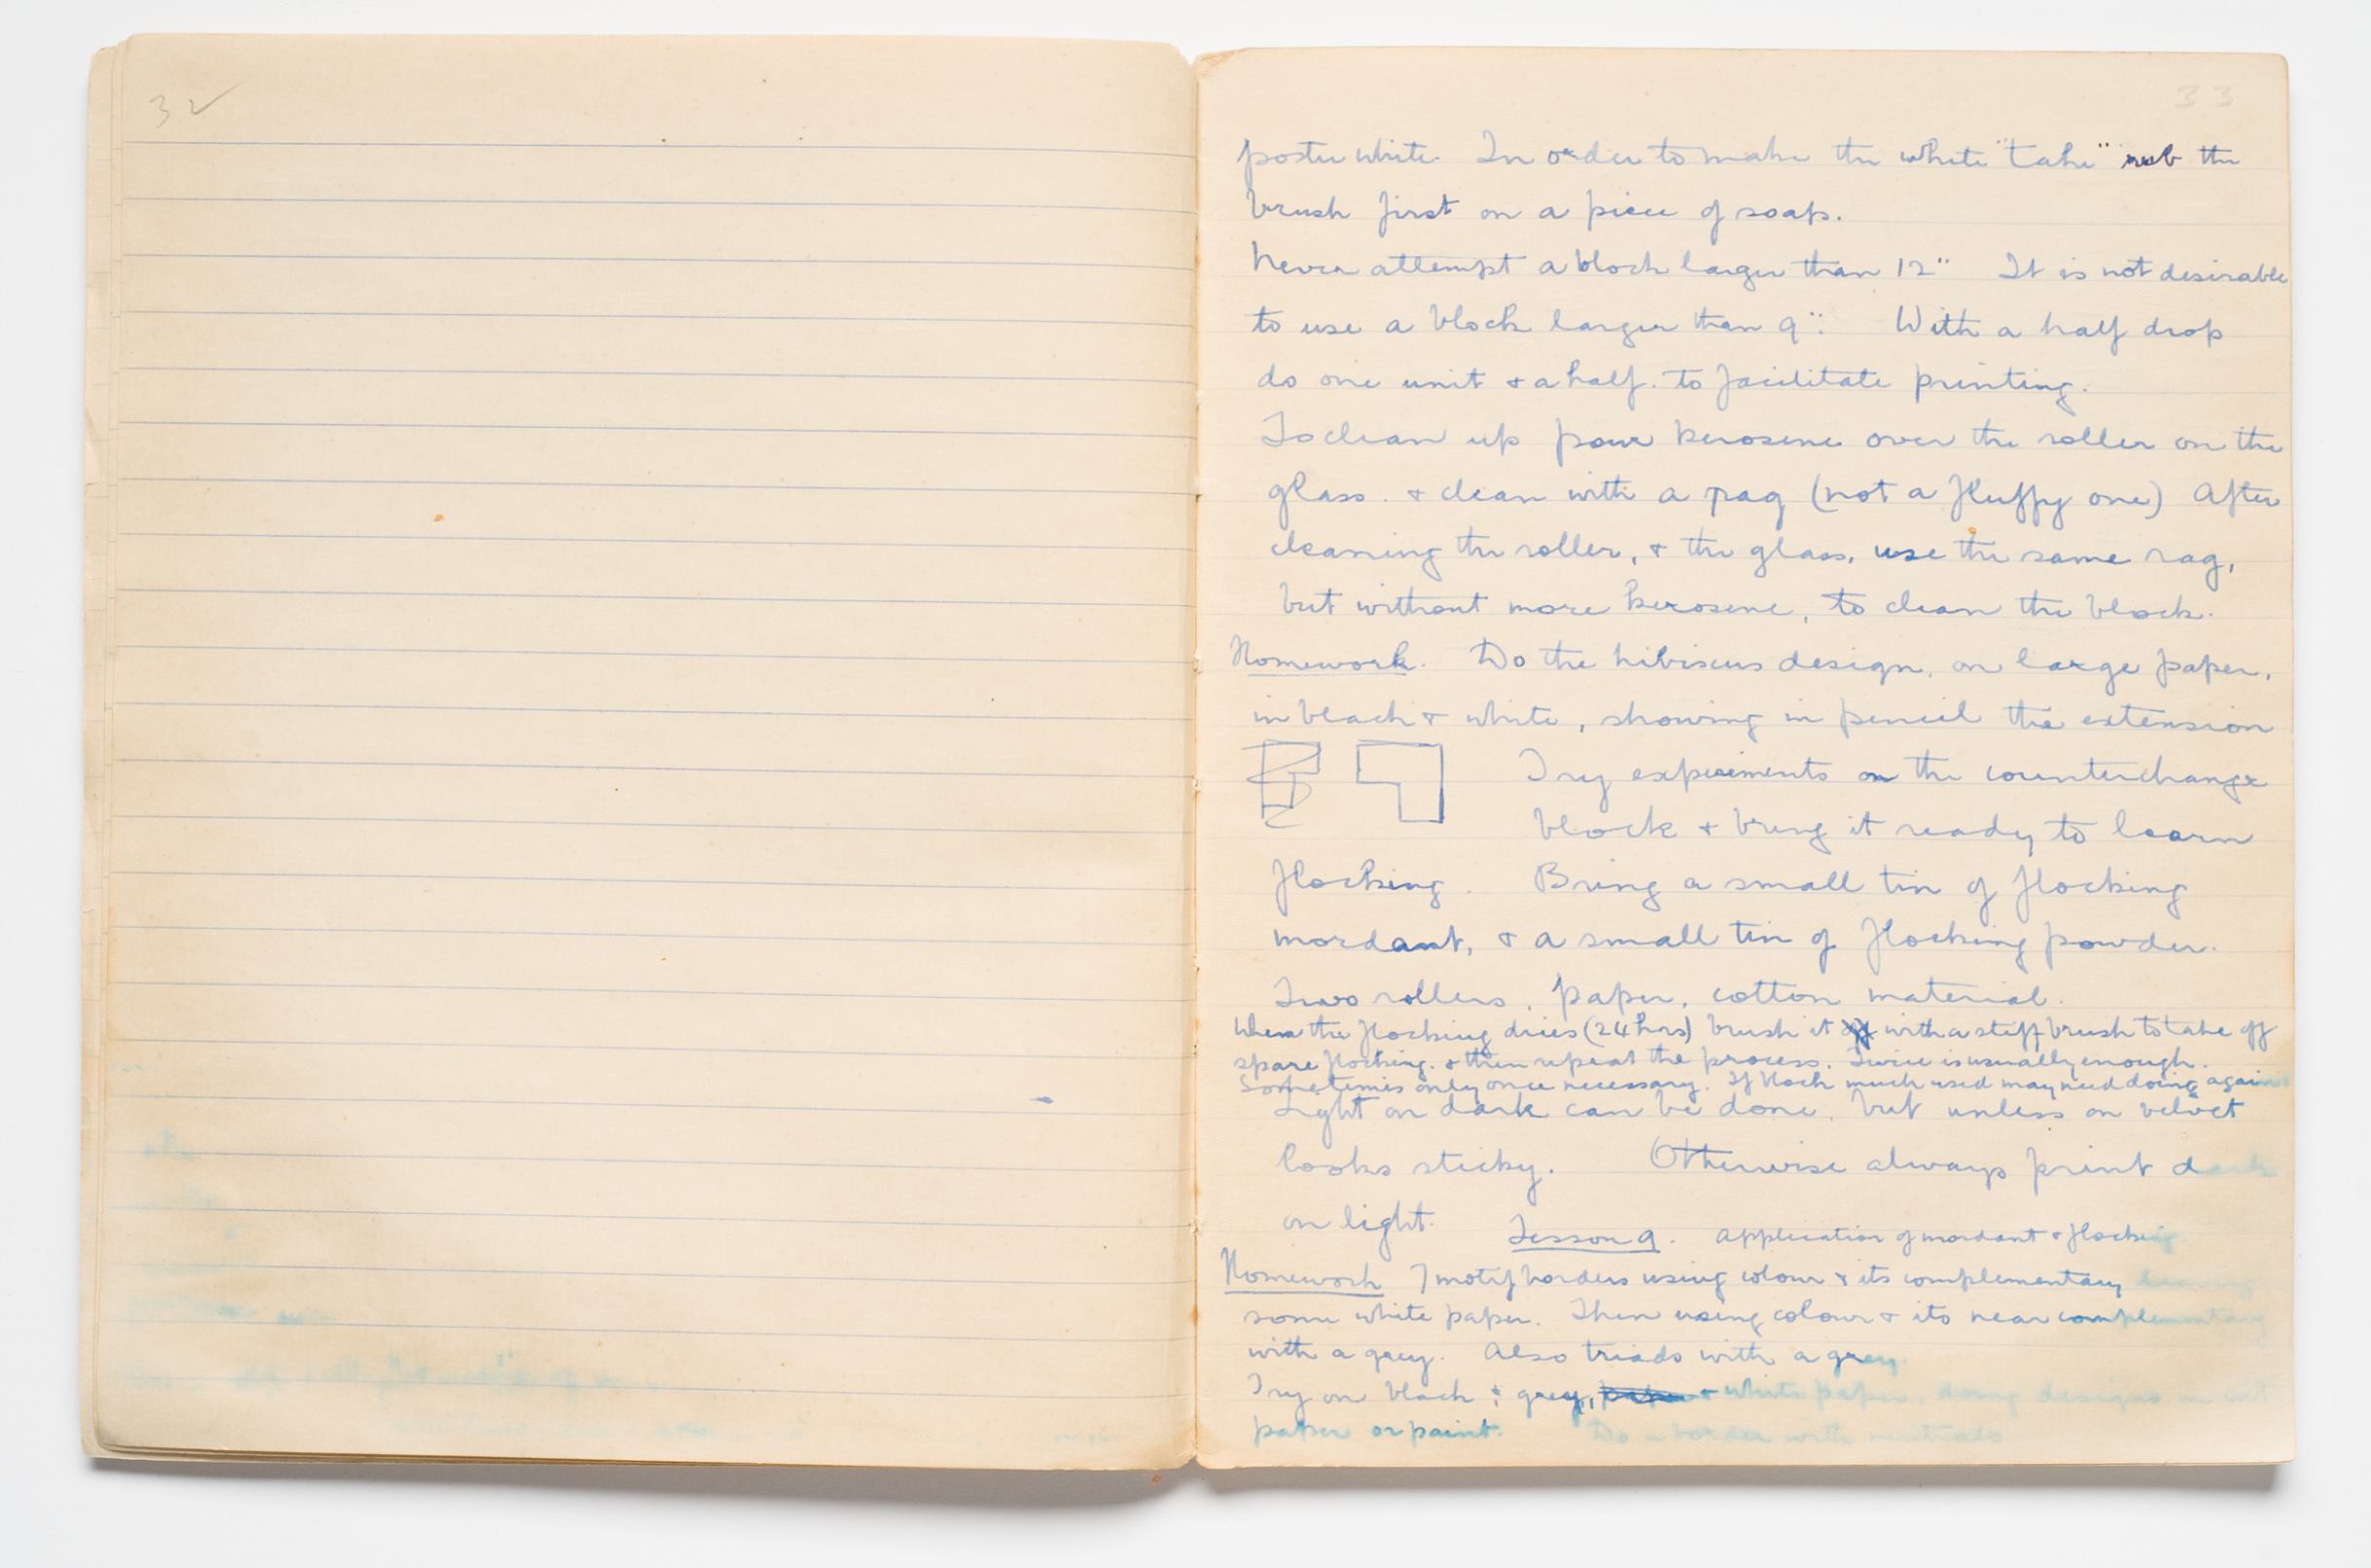 32
33
poster white. In order to make the white "take" rub the
brush first on a piece of soap.
Never attempt a block larger than 12" It is not desirable
to use a block larger than 9". With a half drop
do one unit + a half. to faciditate printing.
To clean up pour kerosene over the roller on the
glass. + clean with a rag (not a fluffy one) After
cleaning the roller, + the glass, use the same rag,
but without more kerosene, to clean the block.
Homework. Do the hibiscus design, on large paper,
in black + white, showing in pencil the extension
Try experiments on the counterchange
block + bring it ready to learn
flocking. Bring a small tin of flocking
mordant, + a small tin of flocking powder.
Two rollers, paper, cotton material.
When the flocking dries (24 hrs) brush it with a stiff brush to take off
spare flocking. + then repeat the process. Twice is usually enough.
Sometimes only once necessary. If block much used may need doing again
Light on dark can be done, but unless on velvet
looks sticky. Otherwise always print dark
on light. Lesson 9. Application of mordant + flocking
Homework 7 motif borders using colour + its complementary leaving
some white paper. Then using colour + its near complementary
with a grey. Also triads with a grey.
Try on black + grey, + white paper, doing designs in cut
paper or paint. Do a border with neutrals